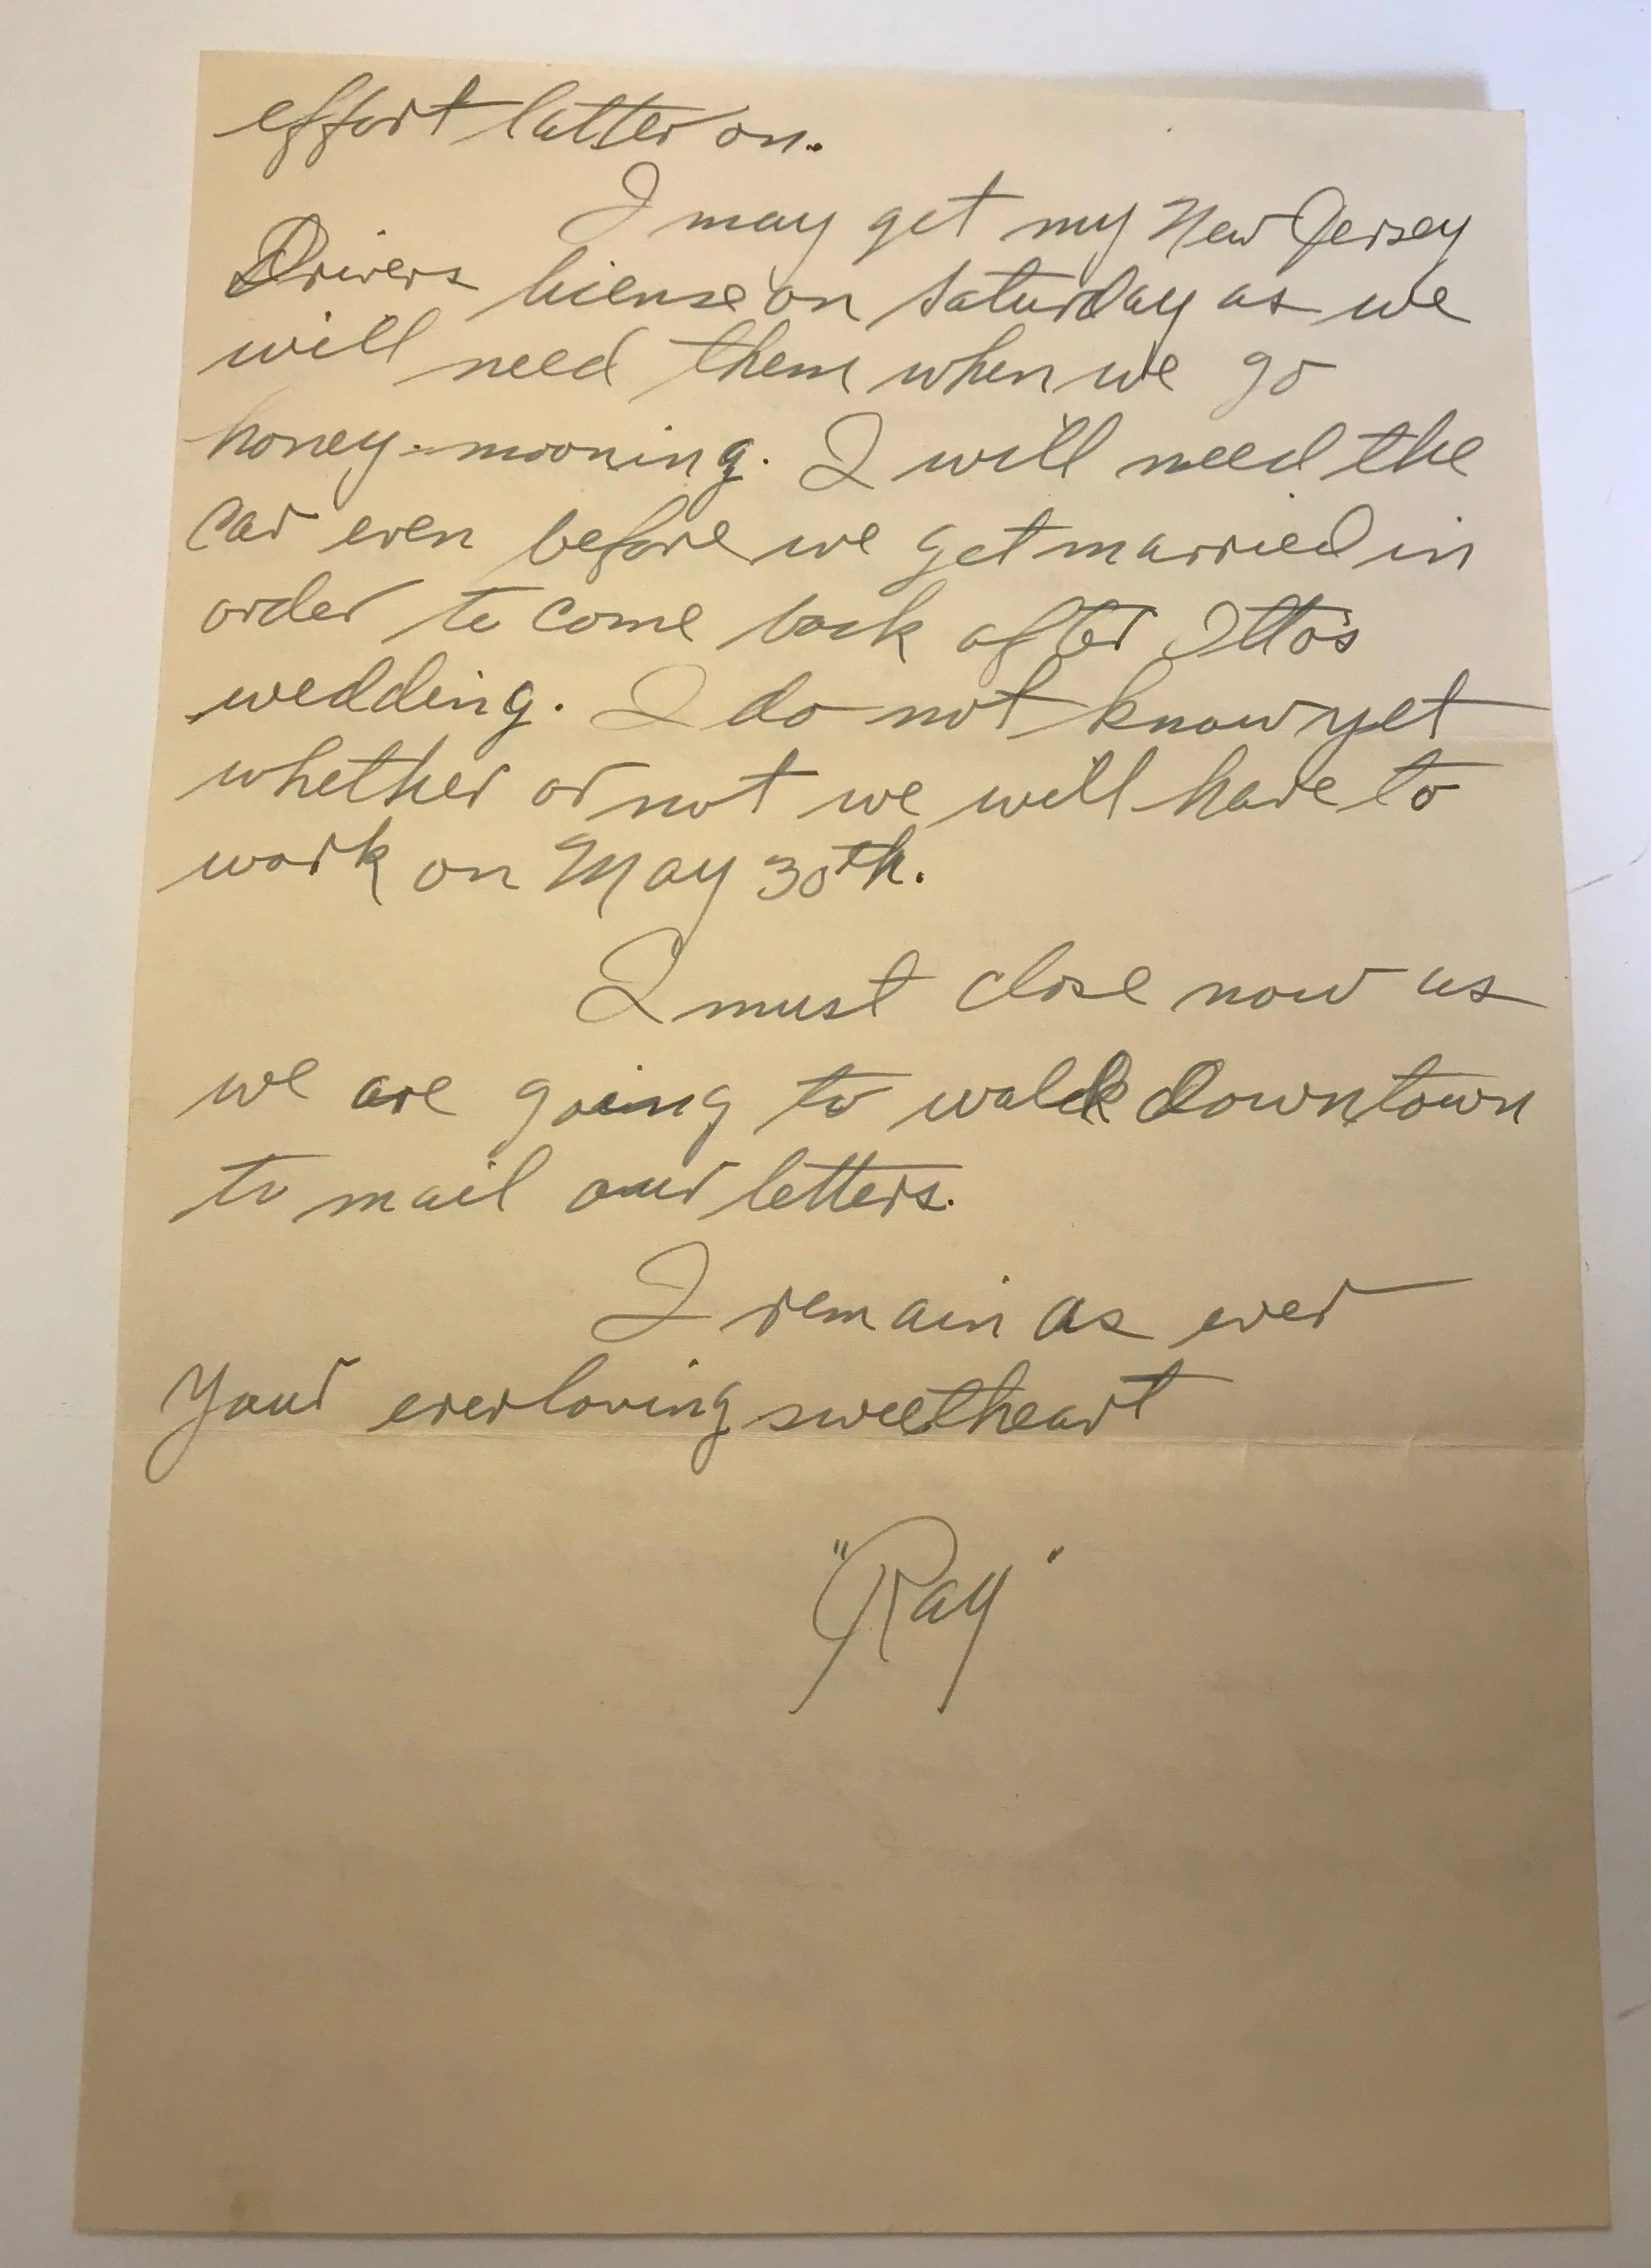 effort latter on.
I may get my New Jersey
Drivers license on Saturday as we
will need them when we go
honey-mooning. I will need the
car even before we get married in
order to come back after Otto's
wedding. I do not know yet
whether or not we will have to
work on May 30th.
I must close now as
we are going to walk downtown
to mail our letters.
I remain as ever
Your everloving sweetheart
"Ray"